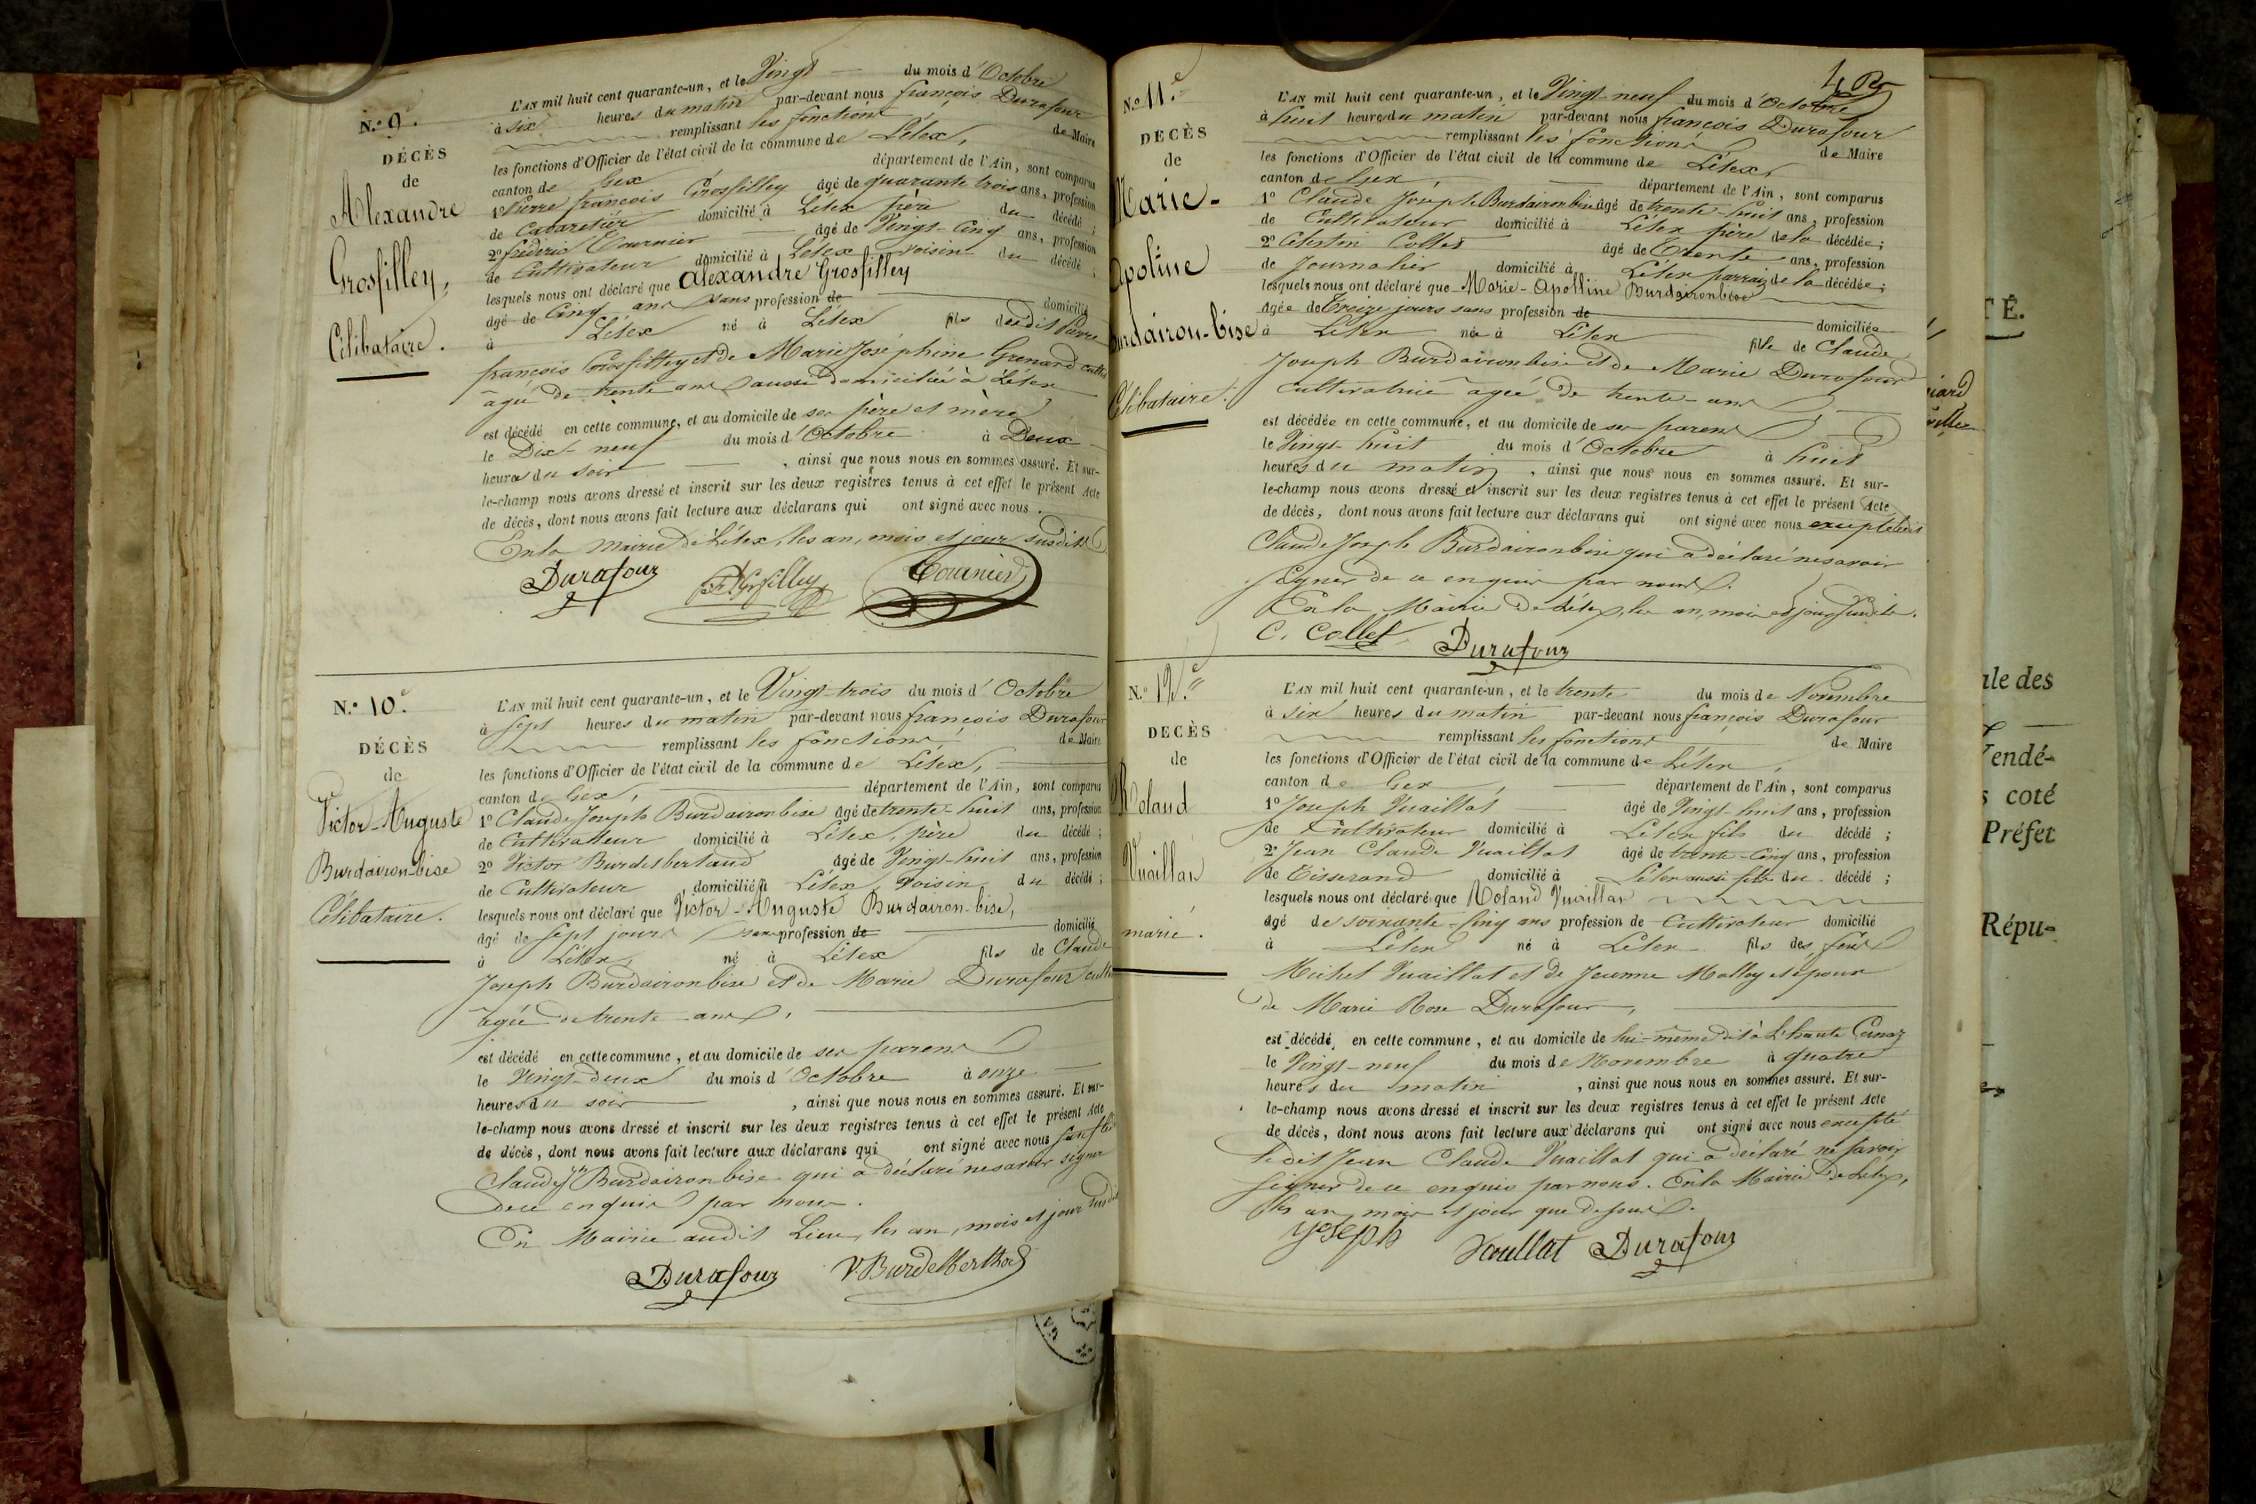 N.o 9.
DÉCÈS
de
Alexandre
Grosfilley,
Célibataire.
L'AN mil huit cent quarante-un, et le Vingt du mois d'Octobre
à six heures du matin par-devant nous françois Durafour
remplissant les fonctions de Maire
les fonctions d'Officier de l'état civil de la commune de Lélex,
canton de Gex département de l'Ain, sont comparus
1o Pierre françois Grosfilley âgé de quarante trois ans, profession
de Cabaretier domicilié à Lélex père du décédé;
2o fréderic Tournier âgé de Vingt-Cinq ans, profession
de Cultivateur domicilié à Lélex voisin du décédé;
lesquels nous ont déclaré que Alexandre Grosfilley
âgé de Cinq ans sans profession de domicilié
à Lélex né à Lélex fils dudit Pierre
françois Grosfilley et de Marie Joséphine Grenard
âgée de trente ans aussi domiciliée à Lélex
est décédé en cette commune, et au domicile de ses père et mère
le Dix-neuf du mois d'Octobre à Deux
heures du soir, ainsi que nous nous en sommes assuré. Et sur-
le-champ nous avons dressé et inscrit sur les deux registres tenus à cet effet le présent Acte
de décès, dont nous avons fait lecture aux déclarans qui ont signé avec nous.
En la Mairie de Lélex, les an, mois et jour susdits
Durafour Grosfilley Tournier
N.o 10.e
DÉCÈS
de
Victor-Auguste
Burdairon-bise
Célibataire.
L'AN mil huit cent quarante-un, et le Vingt-trois du mois d'Octobre
à sept heures du matin par-devant nous françois Durafour
remplissant les fonctions de Maire
les fonctions d'Officier de l'état civil de la commune de Lélex,
canton de Gex, département de l'Ain, sont comparus
1o Claude Joseph Burdaironbise âgé de trente-huit ans, profession
de Cultivateur domicilié à Lélex, père du décédé;
2o Victor Burdet âgé de Vingt-huit ans, profession
de Cultivateur domicilié à Lélex, voisin du décédé;
lesquels nous ont déclaré que Victor-Auguste Burdairon-bise,
âgé de sept jours sans profession de domicilié
à Lélex, né à Lélex fils de Claude
Joseph Burdaironbise et de Marie Durafour
âgée de trente ans,
est décédé en cette commune, et au domicile de ses parens
le Vingt-deux du mois d'Octobre à onze
heures du soir, ainsi que nous nous en sommes assuré. Et sur-
le-champ nous avons dressé et inscrit sur les deux registres tenus à cet effet le présent Acte
de décès, dont nous avons fait lecture aux déclarans qui ont signé avec nous
Claude Jh Burdaironbise qui a déclaré ne savoir signer
de ce enquis par nous.
En Mairie audit Lieu, les an, mois et jour susdits
Durafour V. Burdet
N.o 11.e
DÉCÈS
de
Marie-
Apoline
Burdairon-bise
Célibataire.
L'AN mil huit cent quarante-un, et le Vingt-neuf du mois d'Octobre
à huit heures du matin par-devant nous françois Durafour
remplissant les fonctions de Maire
les fonctions d'Officier de l'état civil de la commune de Lélex,
canton de Gex, département de l'Ain, sont comparus
1o Claude Joseph Burdaironbise âgé de trente-huit ans, profession
de Cultivateur domicilié à Lélex père de la décédée;
2o Célestin Collet âgé de Trente ans, profession
de Journalier domicilié à Lélex parrain de la décédée;
lesquels nous ont déclaré que Marie-Apolline Burdaironbise
âgée de Treize jours sans profession de domiciliée
à Lélex née à Lélex fille de Claude
Joseph Burdaironbise et de Marie Durafour
cultivatrice âgée de trente-ans
est décédée en cette commune, et au domicile de ses parens
le Vingt-huit du mois d'Octobre à huit
heures du matin, ainsi que nous nous en sommes assuré. Et sur-
le-champ nous avons dressé et inscrit sur les deux registres tenus à cet effet le présent Acte
de décès, dont nous avons fait lecture aux déclarans qui ont signé avec nous excepté ledit
Claude Joseph Burdaironbise qui a déclaré ne savoir
signer de ce enquis par nous.
En la Mairie de Lélex, les an, mois et jour susdits.
C. Collet Durafour
N.o 12.e
DÉCÈS
de
Roland
Vuaillat
marié.
L'AN mil huit cent quarante-un, et le trente du mois de Novembre
à six heures du matin par-devant nous françois Durafour
remplissant les fonctions de Maire
les fonctions d'Officier de l'état civil de la commune de Lélex,
canton de Gex, département de l'Ain, sont comparus
1o Joseph Vuaillat âgé de Vingt-huit ans, profession
de Cultivateur domicilié à Lélex fils du décédé;
2o Jean Claude Vuaillat âgé de trente-Cinq ans, profession
de Tisserand domicilié à Lélex aussi fils du décédé;
lesquels nous ont déclaré que Roland Vuaillat
âgé de soixante-Cinq ans profession de Cultivateur domicilié
à Lélex né à Lélex fils des feus
Michel Vuaillat et de Jeanne Malley et époux
de Marie Rose Durafour,
est décédé, en cette commune, et au domicile de lui-même dit à
le Vingt-neuf du mois de Novembre à quatre
heures du matin, ainsi que nous nous en sommes assuré. Et sur-
le-champ nous avons dressé et inscrit sur les deux registres tenus à cet effet le présent Acte
de décès, dont nous avons fait lecture aux déclarans qui ont signé avec nous excepté
ledit Jean Claude Vuaillat qui a déclaré ne savoir
signer de ce enquis par nous. En la Mairie de Lélex,
les an, mois et jour que dessus.
yoseph Vouillat Durafour
TÉ.
ale des
Vendé-
s coté
Préfet
Répu-